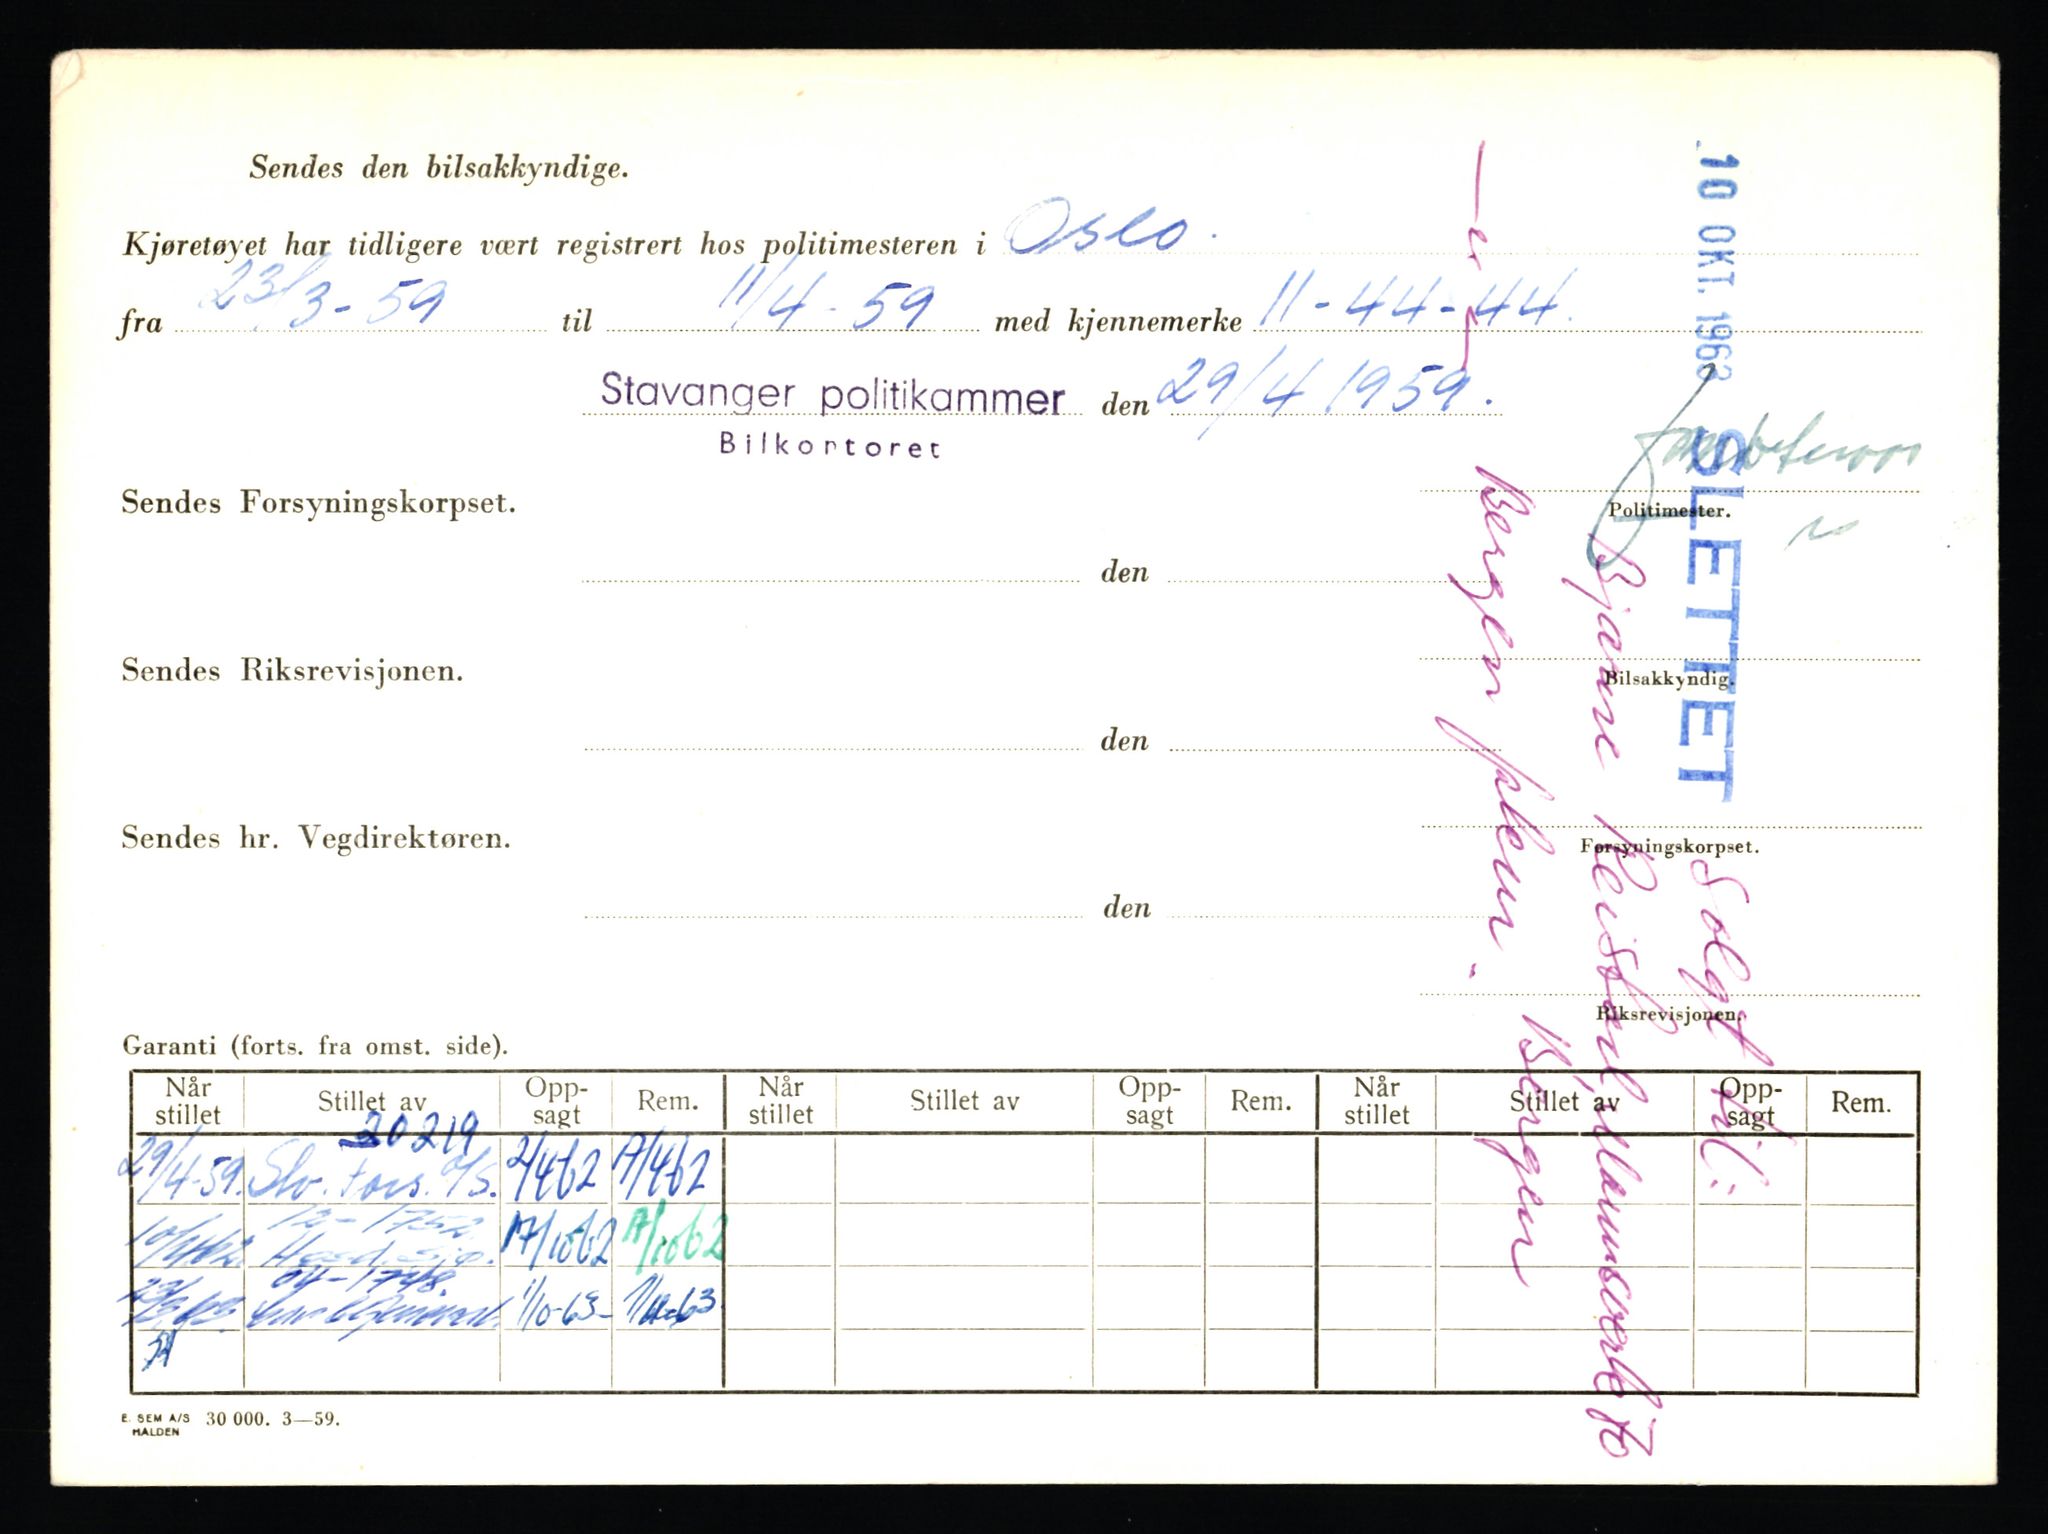 Sendes den bilsakkyndige.
Kjøretøyet har tidligere vært registrert hos politimesteren i Oslo.
fra 23/3-59 til 11/4-59 med kjennemerke 11-44-44.
Stavanger politikammer den 29/4 1959.
Bilkontoret
Politimester.
Sendes Forsyningskorpset.
den
Bilsakkyndig.
Sendes Riksrevisjonen.
den
Forsyningskorpset.
Sendes hr. Vegdirektøren.
den
Riksrevisjonen.
10 OKT. 1963
SLETTET
Solgt til:
Bjarne
Bergen
Garanti (forts. fra omst. side).
Når stillet Stillet av Opp-sagt Rem. Når stillet Stillet av Opp-sagt Rem. Når stillet Stillet av Opp-sagt Rem.
20219
29/4-59. Stv. Fors. A/S. 2/462
12-1752
17/1062
04-1748.
1/10-63
E. SEM A/S HALDEN 30 000. 3—59.